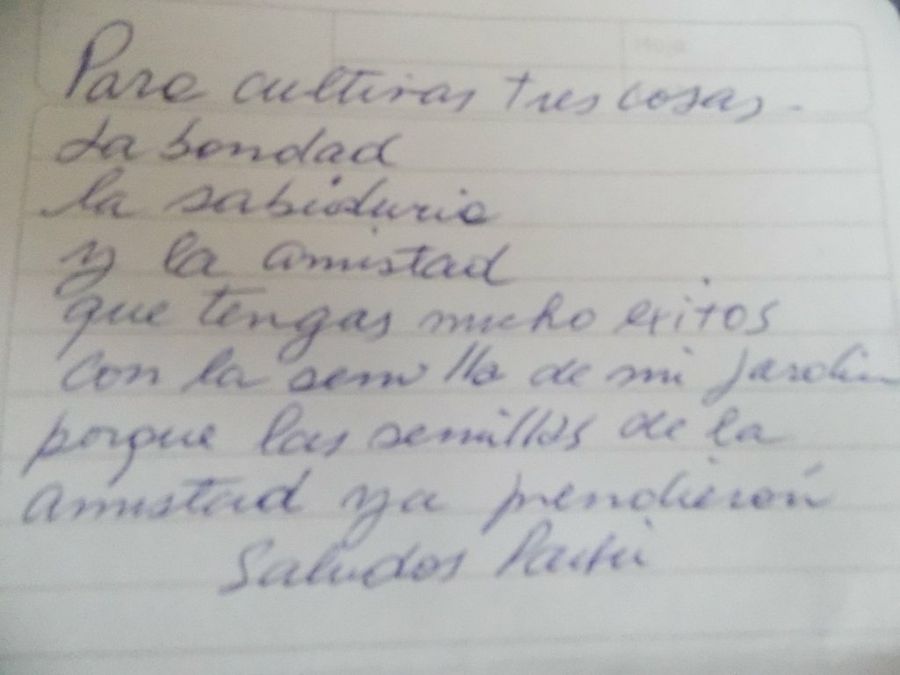 Para cultivar tres cosas.
La bondad
la sabiduria
y la amistad
que tengas mucho exitos
con la semilla de mi jardin
porque las semillas de la
amistad ya prendierón
Saludos